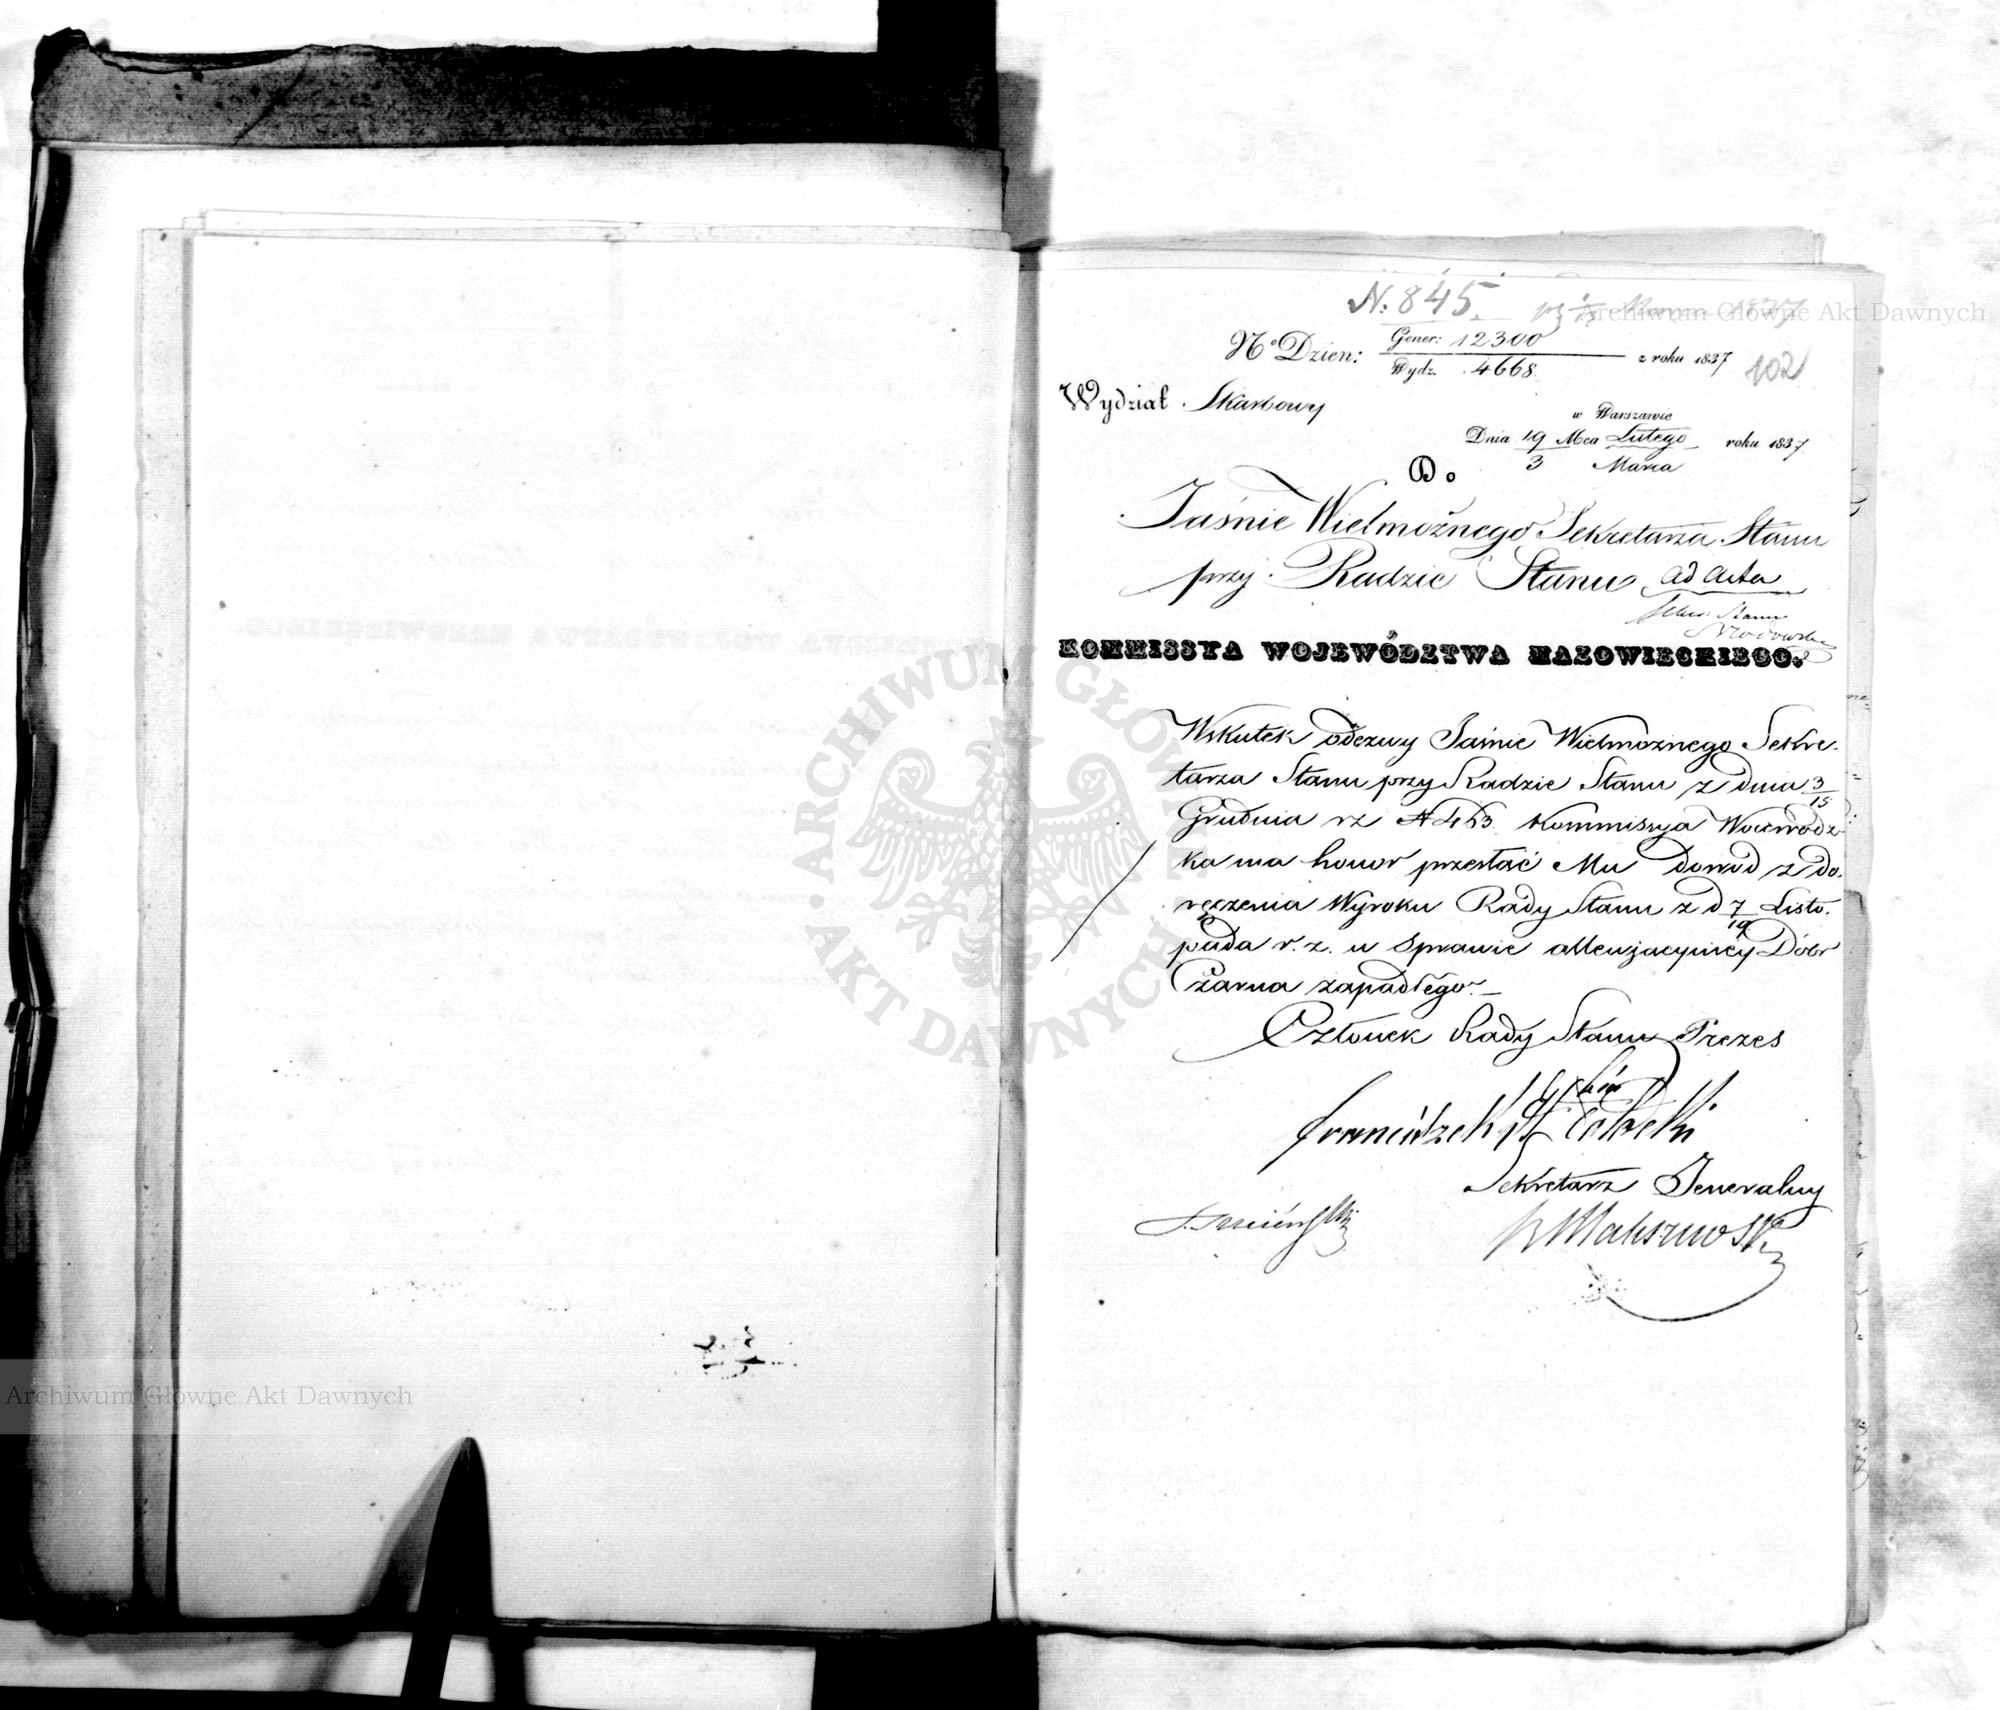 N. 845.
Archiwum Główne Akt Dawnych
No Dzien: Gener: 12300
Wydz. 4668.
z roku 1837
102
Wydział Skarbowy
w Warszawie
Dnia 19 Mca Lutego roku 1837
3 Marca
Do
Jaśnie Wielmożnego Sekretarza Stanu
przy Radzie Stanu
ad acta
KOMMISSYA WOJEWÓDZTWA MAZOWIECKIEGO.
Wskutek odezwy Jaśnie Wielmożnego Sekre-
tarza Stanu przy Radzie Stanu z dnia 3/15
Grudnia rz N 463 Kommissya Woiewódz-
ka ma honor przesłać Mu dowód z do-
ręczenia Wyroku Rady Stanu z d 7/19 Listo-
pada r. z. w Sprawie Dóbr
Czarna zapadłego.
Członek Rady Stanu Prezes
Franciszek
Sekretarz Jeneralny
ARCHIWUM GŁÓWNE AKT DAWNYCH
Archiwum Główne Akt Dawnych